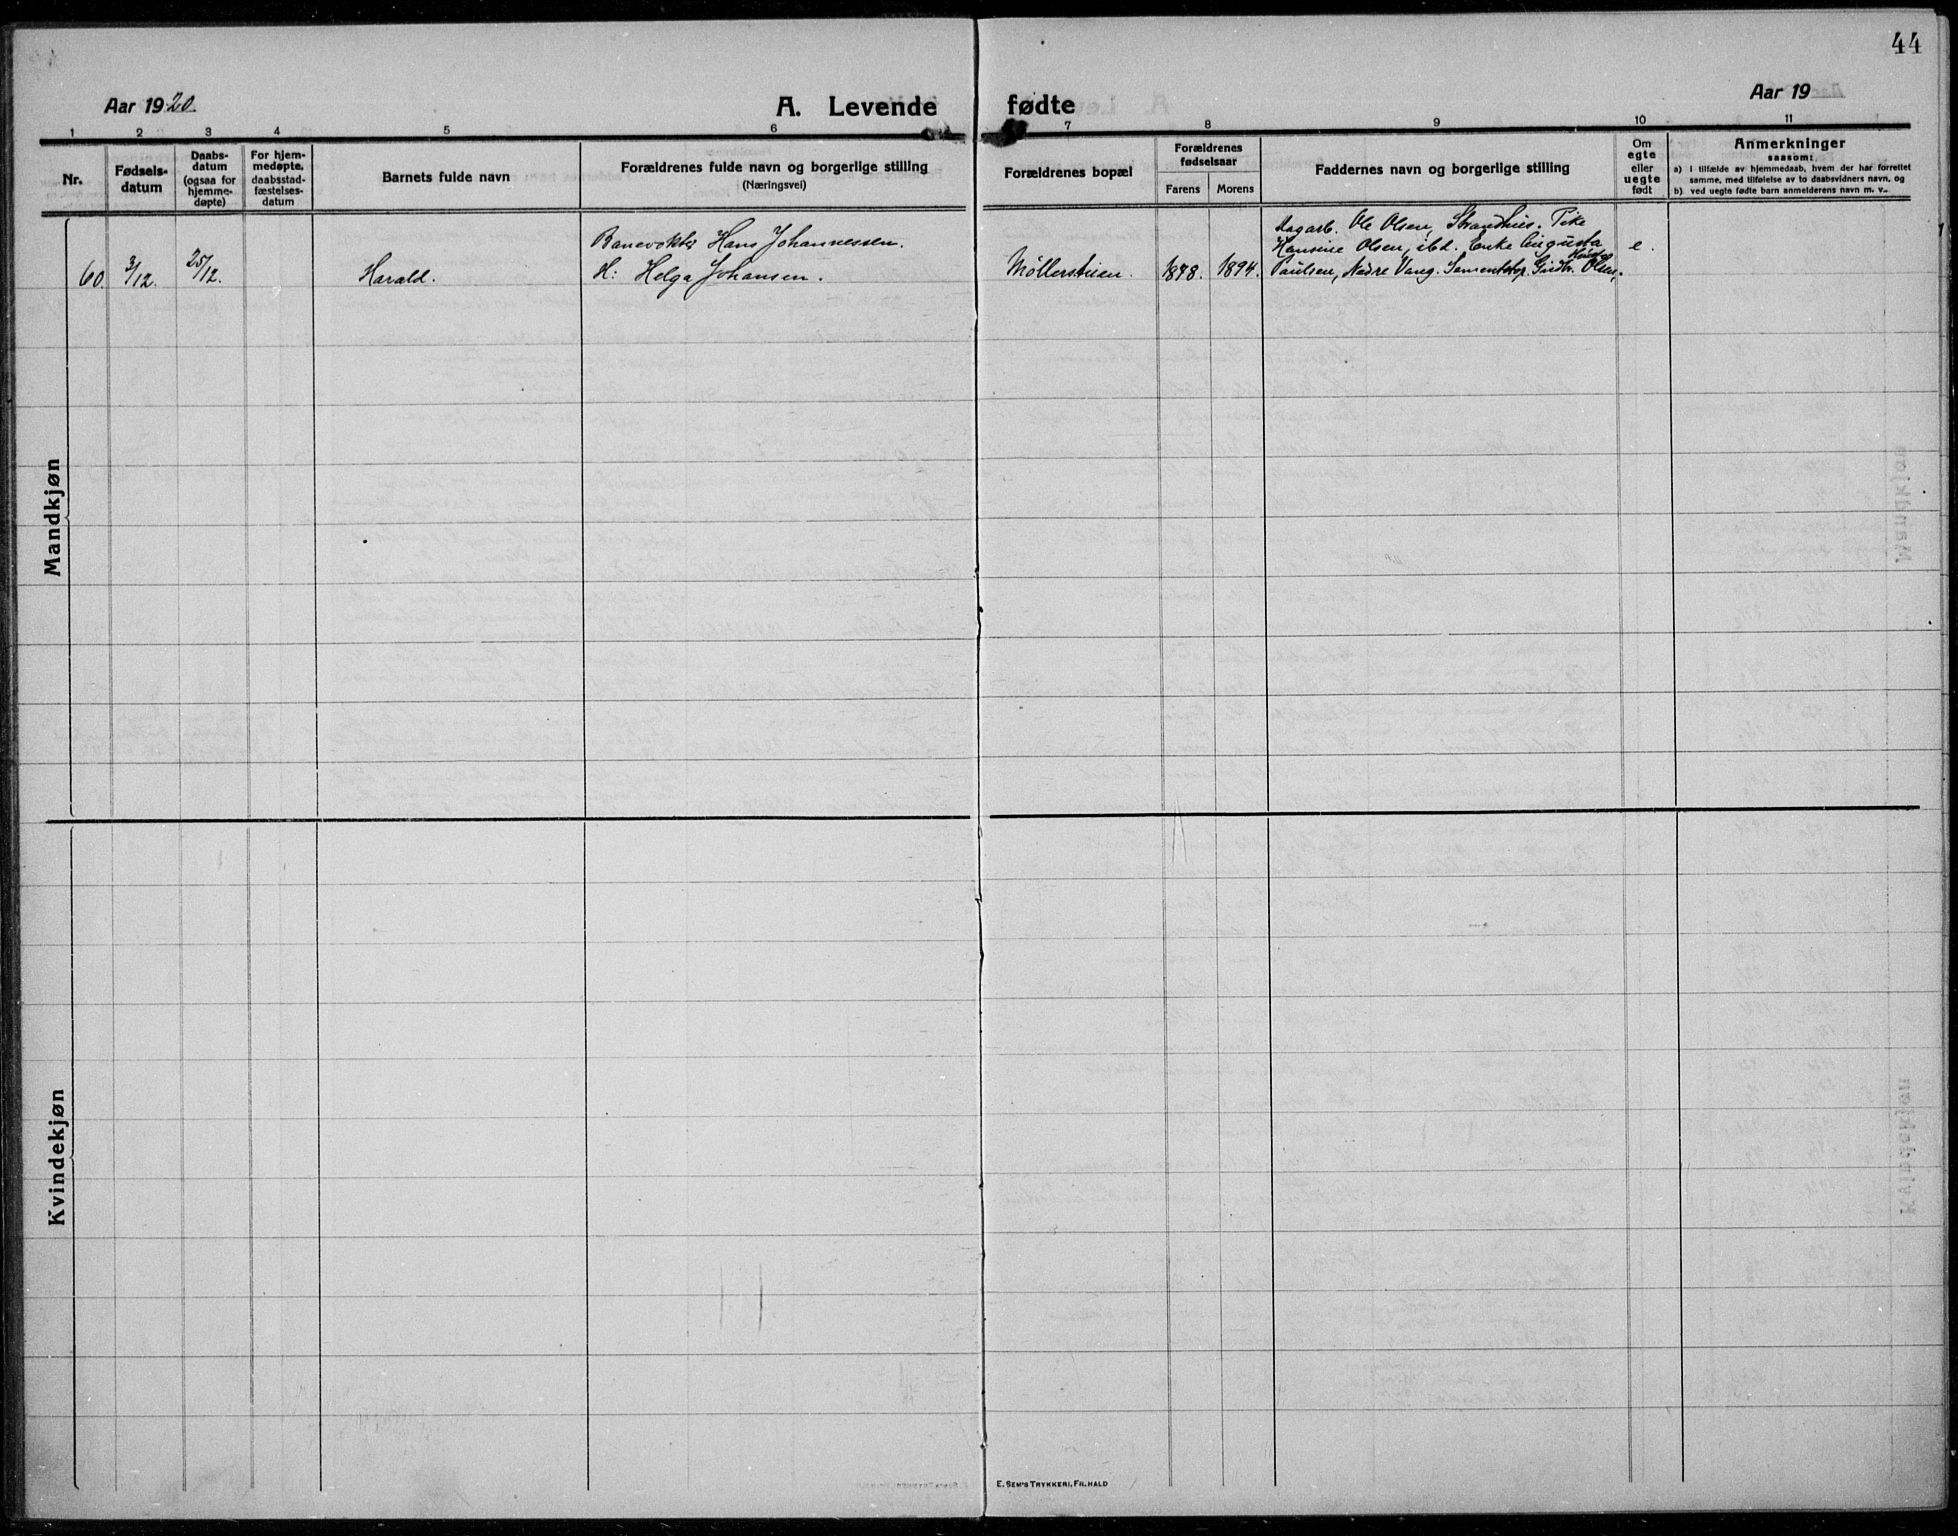 44
Aar 1920.
A. Levende fødte
Aar 19
1 2 3 4 5 6 7 8 9 10 11
Nr.
Fødsels-
datum
Daabs-
datum
(ogsaa for
hjemme-
døpte)
For hjem-
medøpte,
daabsstad-
fæstelses-
datum
Barnets fulde navn
Forældrenes fulde navn og borgerlige stilling
(Næringsvei)
Forældrenes bopæl
Forældrenes
fødselsaar
Farens Morens
Faddernes navn og borgerlige stilling
Om
egte
eller
uegte
født
Anmerkninger
saasom:
a) I tilfælde av hjemmedaab, hvem der har forrettet
samme, med tilføielse av to daabsvidners navn, og
b) ved uegte fødte barn anmelderens navn m. v..
Mandkjøn
60. 3/12. 25/12. Harald.
Banevokter Hans Johannessen.
H: Helga Johansen.
Møllerstuen. 1878. 1894.
Dagarb. Ole Olsen, Strandhus. Pike
Hansine Olsen, ibd. Enke Augusta
Paulsen, Nedre Vang. Sementstøp. Gudbr. Olsen,
e.
Kvindekjøn
E. Sem's Trykkeri, Fr.hald